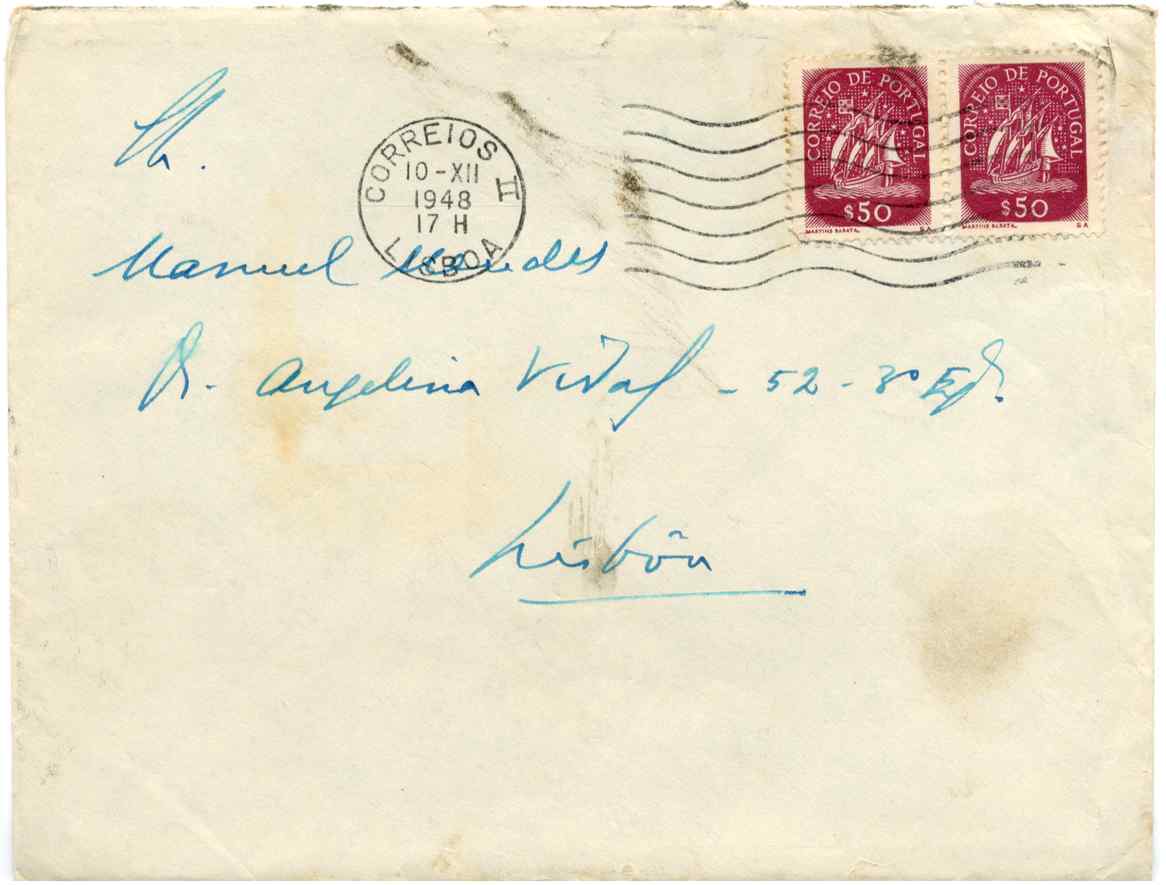 Sr.
CORREIOS II
10-XII
1948
17 H
LISBOA
CORREIO DE PORTUGAL
$50
MARTINS BARATA.
CORREIO DE PORTUGAL
$50
MARTINS BARATA.
Manuel Mendes
R. Angelina Vidal - 52 - 3º Eq.
Lisbôa